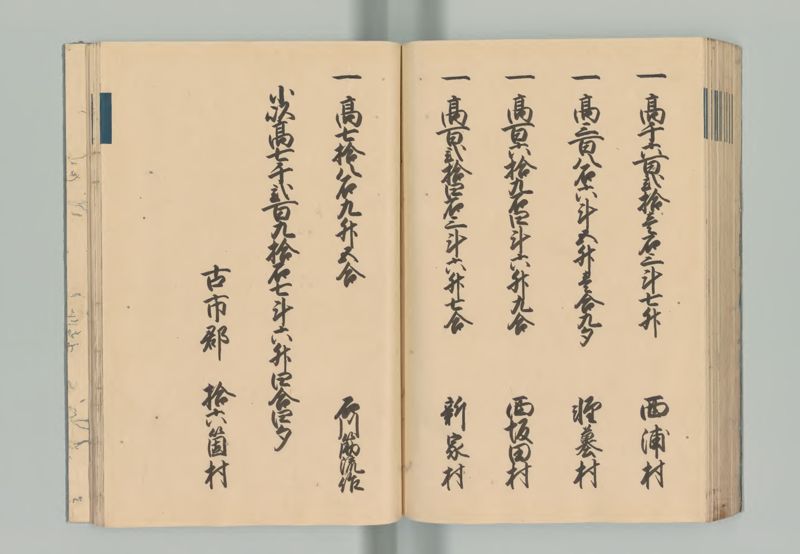 一 高千六百弐拾壱石三斗七升 西浦村
一 高三百八石六斗五升壱合九夕 軽墓村
一 高百六拾九石四斗六升九合 西坂田村
一 高百弐拾四石三斗六升七合 新家村
一 高七拾八石九升五合 石川筋流作
小以高七千弐百九拾石七斗六升四合四夕
古市郡 拾六箇村